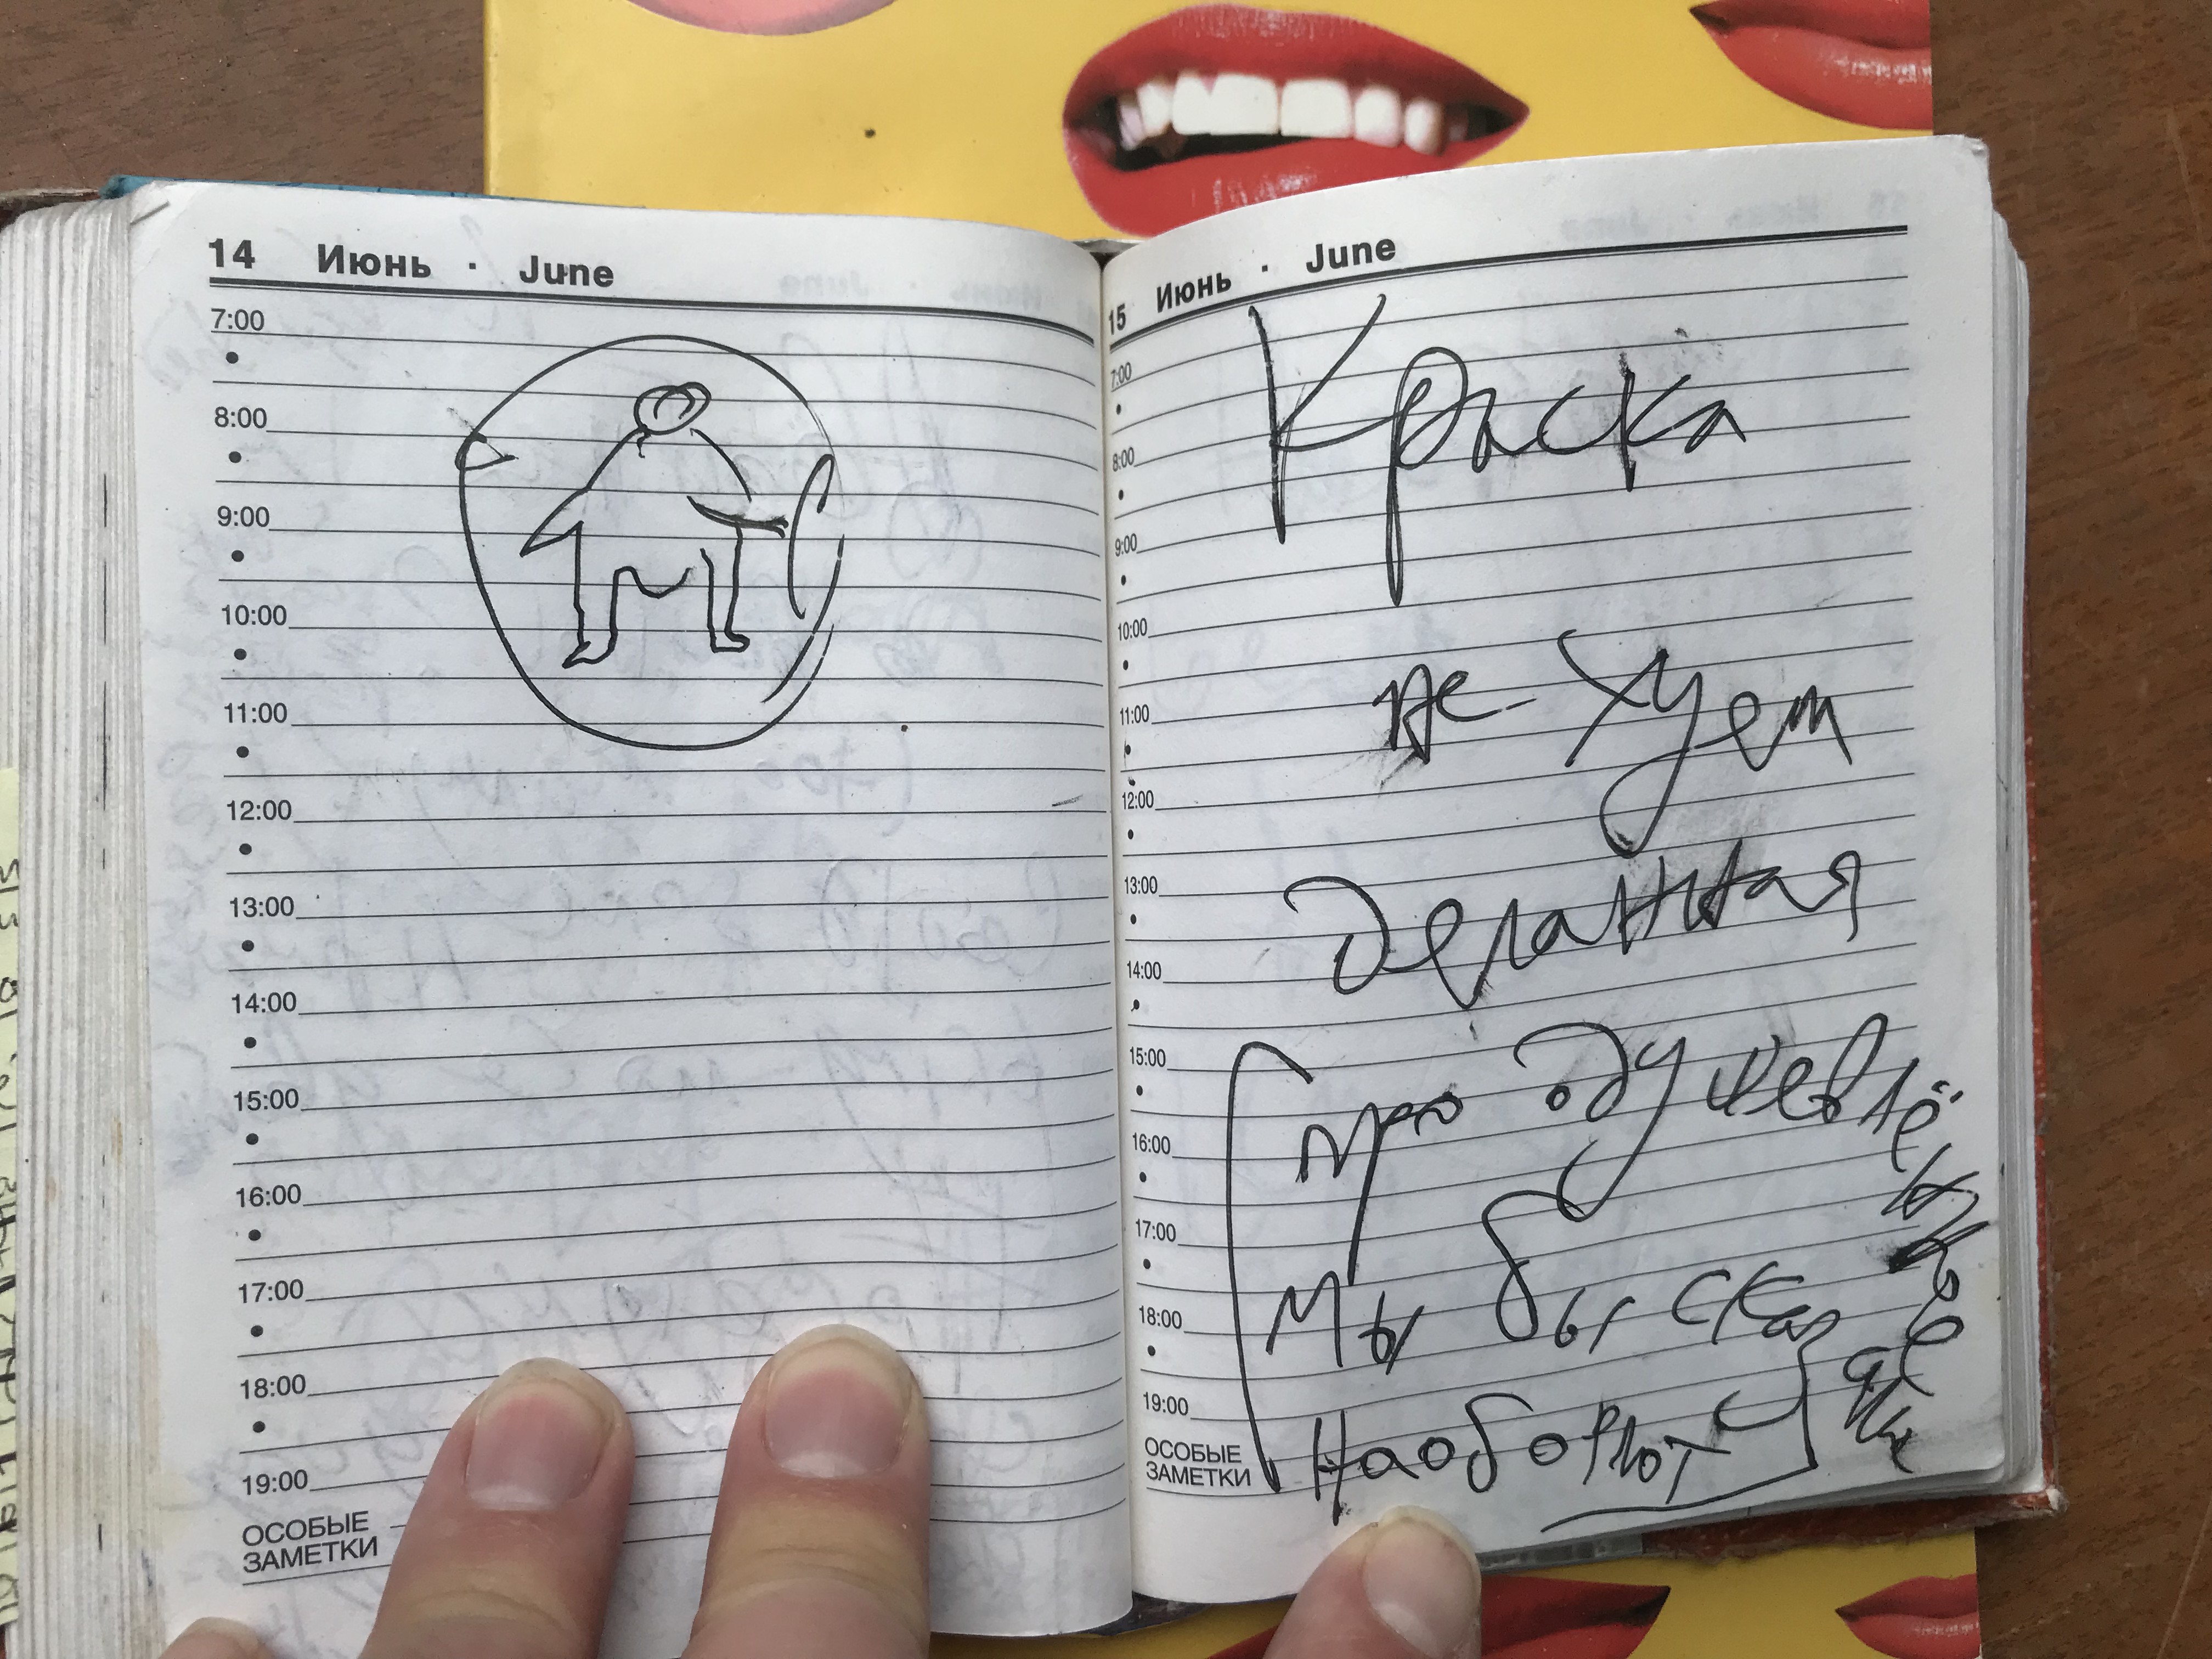 14 Июнь · June
7:00
8:00
9:00
10:00
11:00
12:00
13:00
14:00
15:00
16:00
17:00
18:00
19:00
ОСОБЫЕ
ЗАМЕТКИ
15 Июнь · June
7:00
8:00
9:00
10:00
11:00
12:00
13:00
14:00
15:00
16:00
17:00
18:00
19:00
ОСОБЫЕ
ЗАМЕТКИ
Крыска
не-хуем
деланная
(про
мы бы сказ
Наоборот